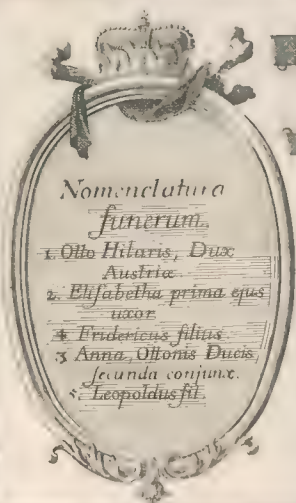 Nomenclatura
funerum.
1. Otto Hilaris, Dux
Austriæ
2. Elisabetha prima ejus
uxor
4 Fridericus filius
3 Anna, Ottonis Ducis
secunda conjunx.
5. Leopoldus fil.